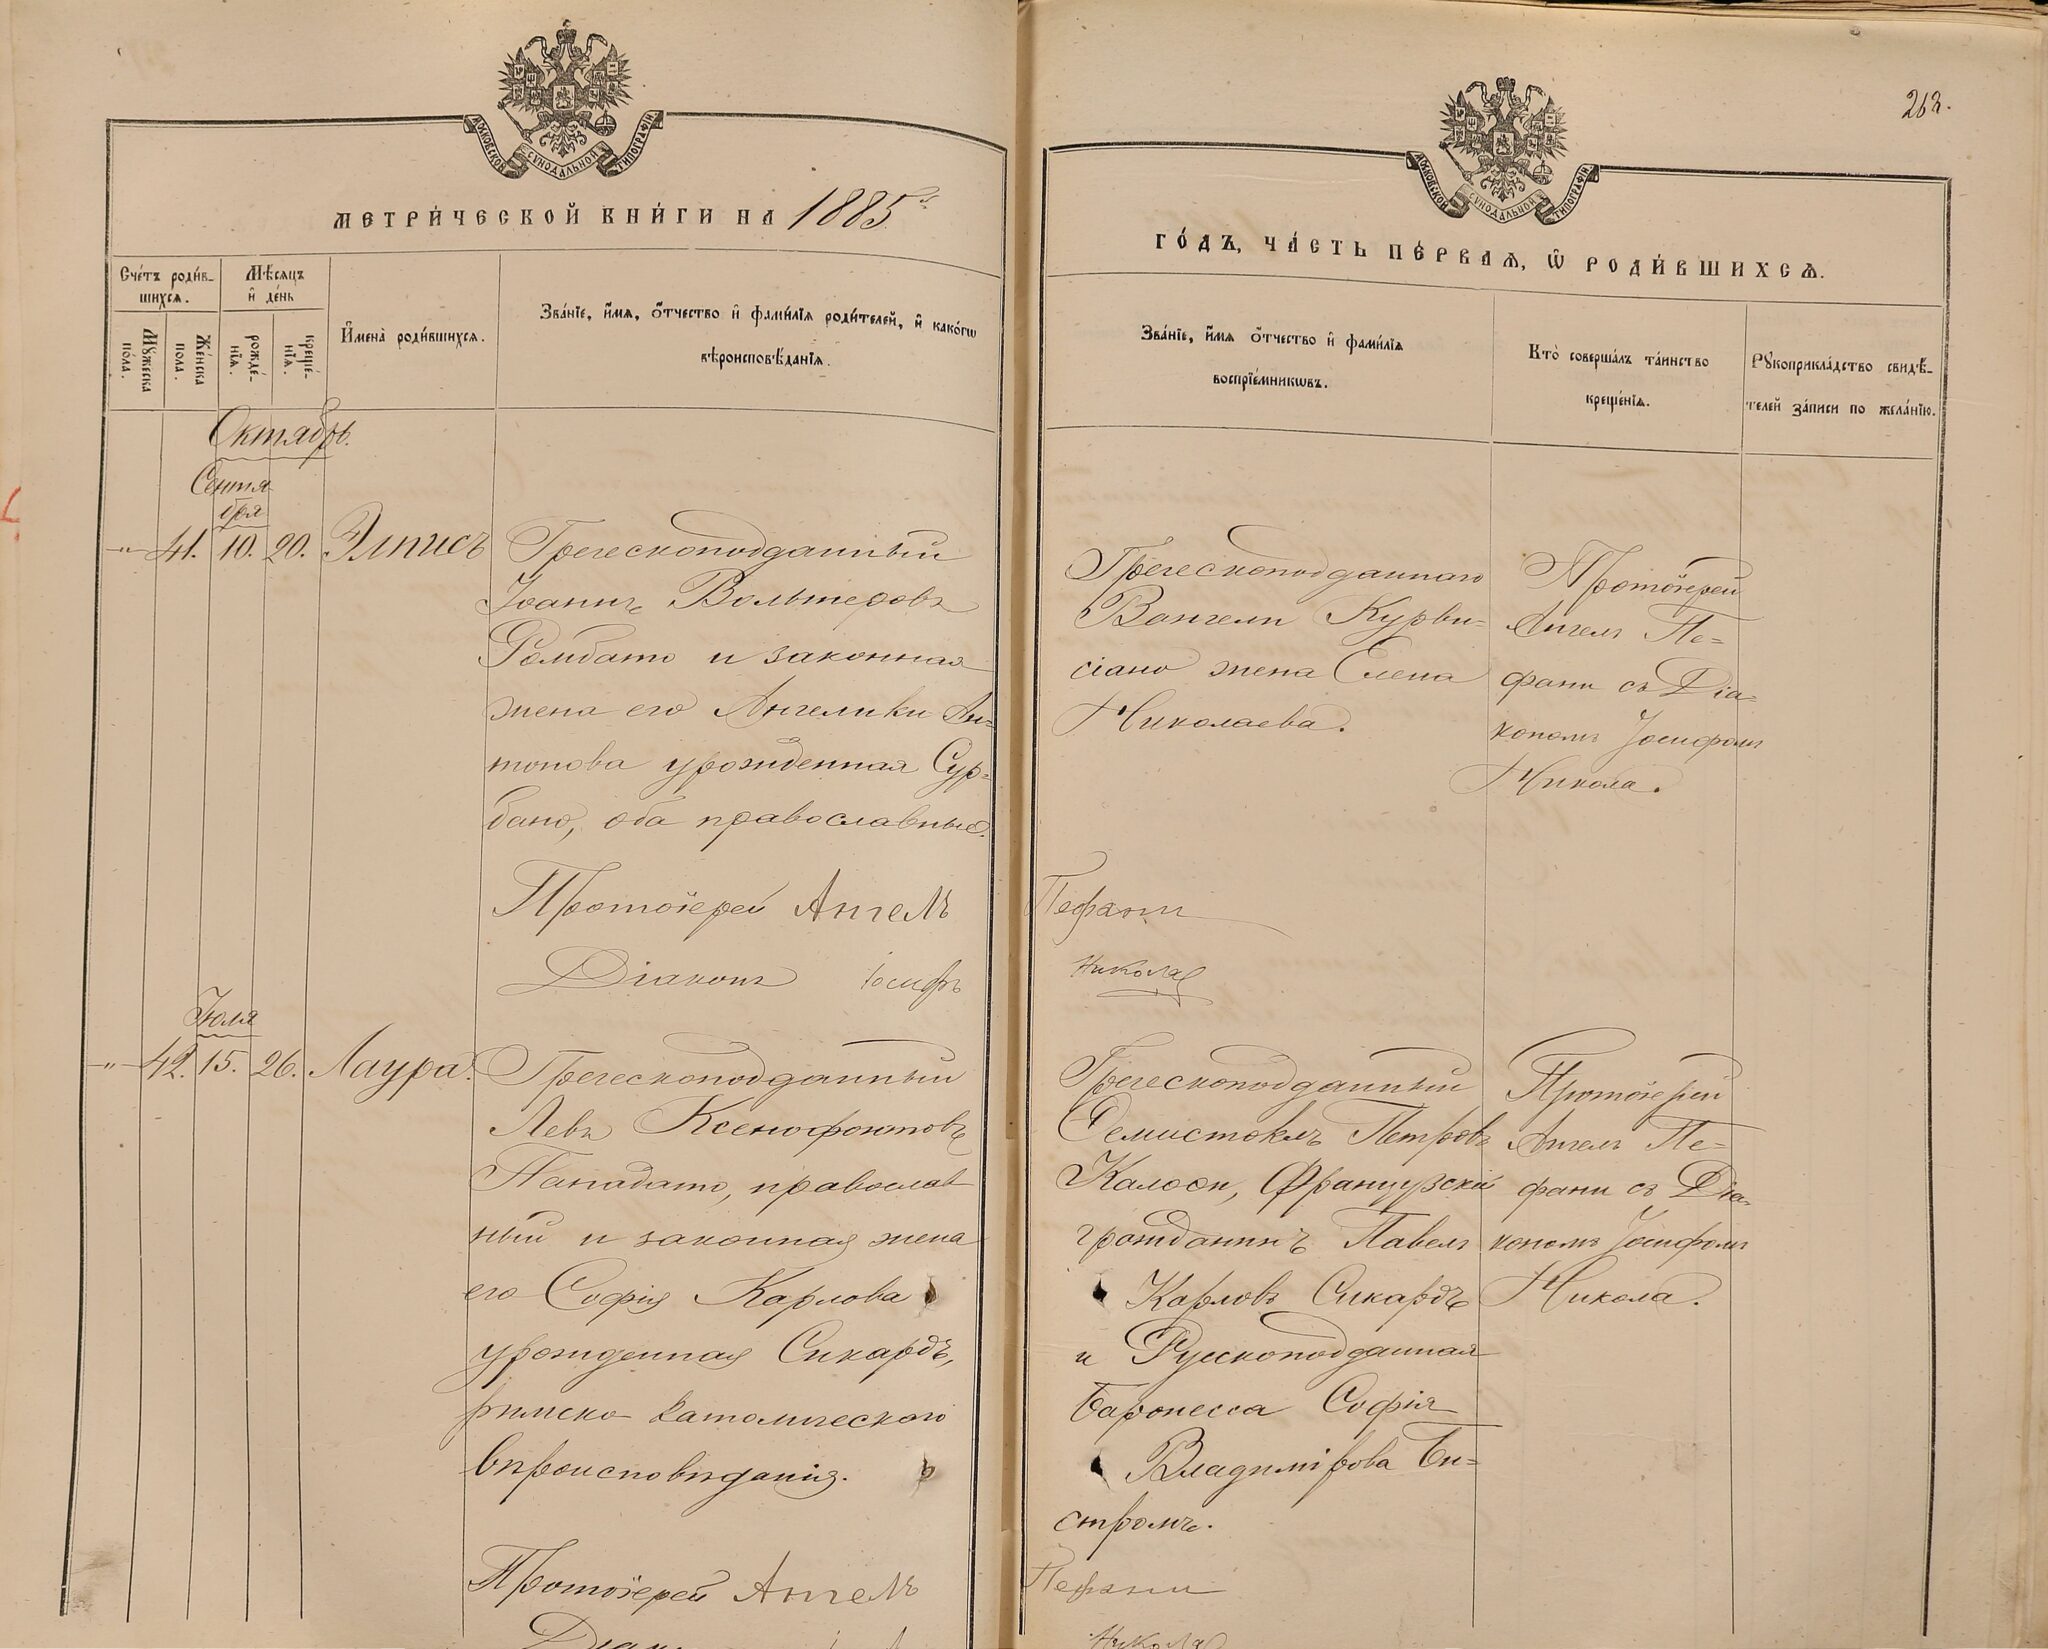 МОСКОВСКОЙ СѴНОДАЛЬНОЙ ТИПОГРАФІИ
МЕТРИ́ЧЕСКОЙ КНИ́ГИ НА 1885й
Сче́тъ роди́в-
шихся.
Мѣсяцъ
и҆ де́нь
Мꙋжеска
по́ла.
Же́нска
пола.
рожде́-
нїя.
креще́-
нїя.
И҆мена̀ роди́вшихся.
Зва́нїе, и҆́мя, ѻ҆́тчество и҆ фами́лїя роди́телей, и҆ како́гѡ
вѣроисповѣ́данїя.
Октябрь.
Сентя
бря
-"- 41. 10. 20. Элписъ
Греческоподданный
Іоаннъ Вольтеровъ
Ѳомбато и законная
жена его Ангелики Ан=
тонова урожденная Сур=
бано, оба православные.
Протоіерей Ангелъ
Діаконъ Іосифъ
Іюля
-"- 42. 15. 26. Лаура.
Греческоподданный
Левъ Ксенофонтовъ
Панадато, православ
ный и законная жена
его Софія Карлова
урожденная Сикардъ,
римско католическаго
вѣроисповѣданія.
Протоіерей Ангелъ
262.
МОСКОВСКОЙ СѴНОДАЛЬНОЙ ТИПОГРАФІИ
ГО́ДЪ, ЧА́СТЬ ПЕ́РВАЯ, Ѽ РОДИ́ВШИХСЯ.
Зва́нїе, и҆́мя ѻ҆́тчество и҆ фами́лїя
воспрїе́мникѡвъ.
Кто̀ соверша́лъ та́инство
креще́нїя.
Рꙋкоприкла́дство свидѣ́-
телей за́писи по жела́нїю.
Греческоподданнаго
Вангели Курви=
сіано жена Елена
Николаева.
Протоіерей
Ангелъ Пе=
фани съ Діа=
кономъ Іосифомъ
Никола.
Пефани
Никола
Греческоподданный
Ѳемистоклъ Петровъ
Калоси, Французскій
гражданинъ Павелъ
Карловъ Сикардъ
и Русскоподданная
Баронесса Софія
Владимірова Би=
стромъ.
Протоіерей
Ангелъ Пе=
фани съ Діа=
кономъ Іосифомъ
Никола.
Пефани
Никола